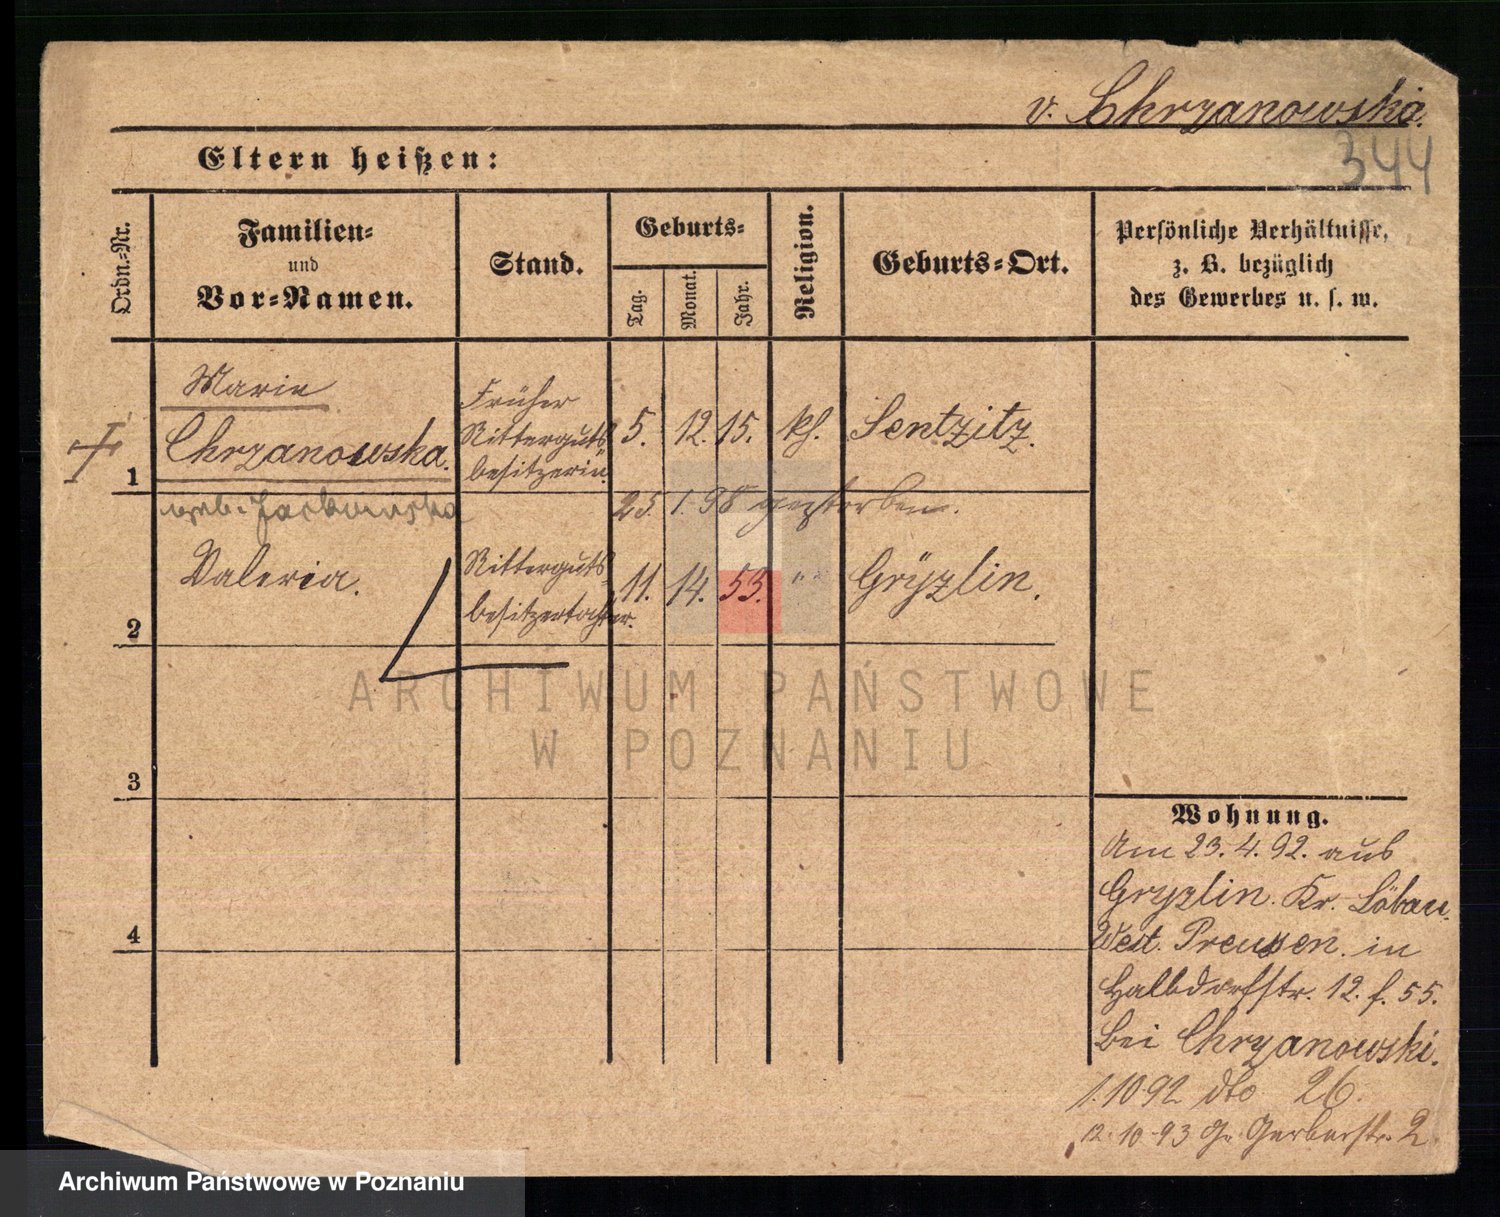 v. Chrzanowska.
344
Eltern heißen:
Ordn.-Nr.
Familien-
und
Vor-Namen.
Stand.
Geburts-
Tag.
Monat.
Jahr.
Religion.
Geburts-Ort.
Persönliche Verhältnisse,
z. B. bezüglich
des Gewerbes u. s. w.
1
Marie
Chrzanowska.
geb.
Früher
Ritterguts
besitzerin.
5. 12. 15. kf. Sentzitz.
25. 1. 98 gestorben.
2
Valeria.
Ritterguts-
besitzertochter.
11. 14. 53. " " Gryzlin.
3
4
Wohnung.
Am 23. 4. 92. aus
Gryzlin. Kr. Löbau.
West. Preusen. in
Halbdorfstr. 12. f. 55.
bei Chrzanowski.
1. 10. 92 dto 26.
12. 10. 93 Gr. Gerberstr. 2
ARCHIWUM PAŃSTWOWE
W POZNANIU
Archiwum Państwowe w Poznaniu